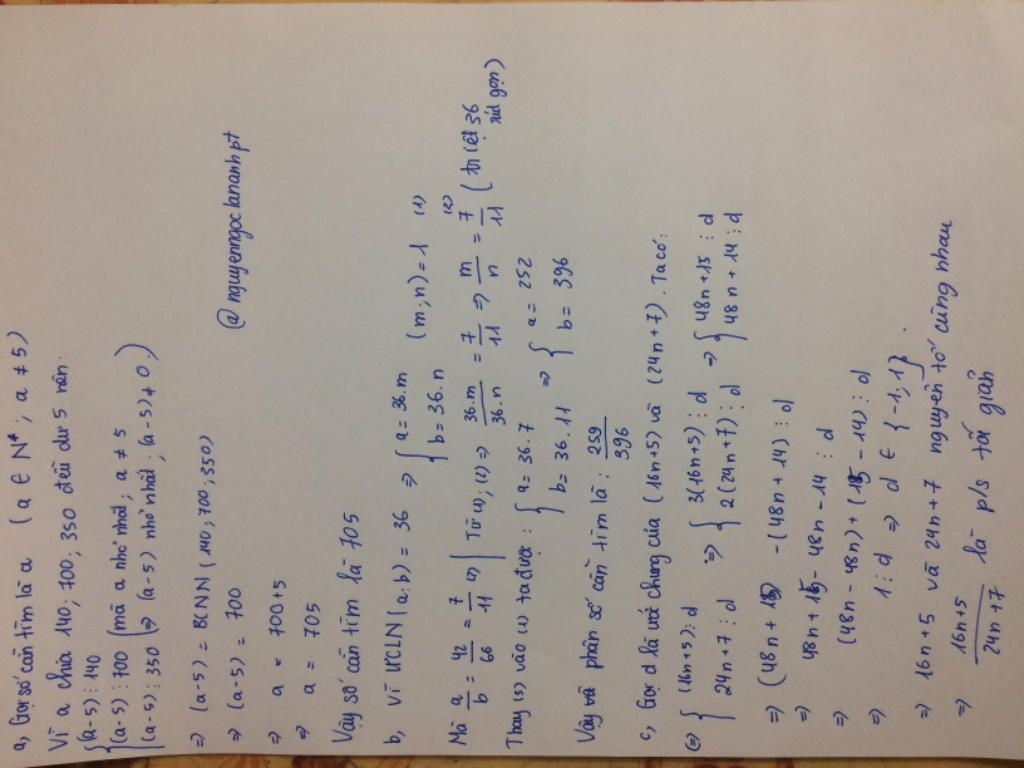 a, Gọi số cần tìm là a (a ∈ N*; a ≠ 5)
Vì a chia 140; 700; 350 đều dư 5 nên:
{(a-5) ⋮ 140
(a-5) ⋮ 700 (mà a nhỏ nhất; a ≠ 5
(a-5) ⋮ 350 ⇒ (a-5) nhỏ nhất; (a-5) ≠ 0.)
⇒ (a-5) = BCNN(140; 700; 350)
⇒ (a-5) = 700
@nguyenngoclananhpt
⇒ a = 700+5
⇒ a = 705
Vậy số cần tìm là 705
b, Vì ƯCLN(a;b) = 36 ⇒ { a = 36.m
b = 36.n (m;n) = 1 (1)
Mà a/b = 42/66 = 7/11 (2) | Từ (1); (2) ⇒ 36.m/36.n = 7/11 ⇒ m/n = 7/11 (triệt 36 rút gọn)
Thay (3) vào (1) ta được: { a = 36.7
b = 36.11 ⇒ { a = 252
b = 396
Vậy phân số cần tìm là: 259/396
c, Gọi d là ước chung của (16n+5) và (24n+7). Ta có:
(⇒) { (16n+5) ⋮ d
24n+7 ⋮ d ⇒ { 3(16n+5) ⋮ d
2(24n+7) ⋮ d ⇒ { 48n+15 ⋮ d
48n+14 ⋮ d
⇒ (48n+15) - (48n+14) ⋮ d
⇒ 48n+15-48n-14 ⋮ d
⇒ (48n-48n)+(15-14) ⋮ d
⇒ 1 ⋮ d ⇒ d ∈ {-1;1}
⇒ 16n+5 và 24n+7 nguyên tố cùng nhau
⇒ 16n+5/24n+7 là p/s tối giản